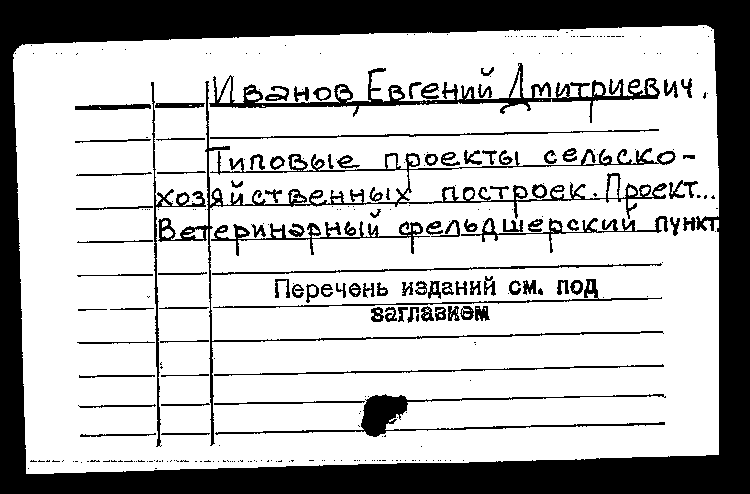 Иванов, Евгений Дмитриевич.
Типовые проекты сельско-
хозяйственных построек. Проект...
Ветеринарный фельдшерский пункт.
Перечень изданий см. под
заглавием